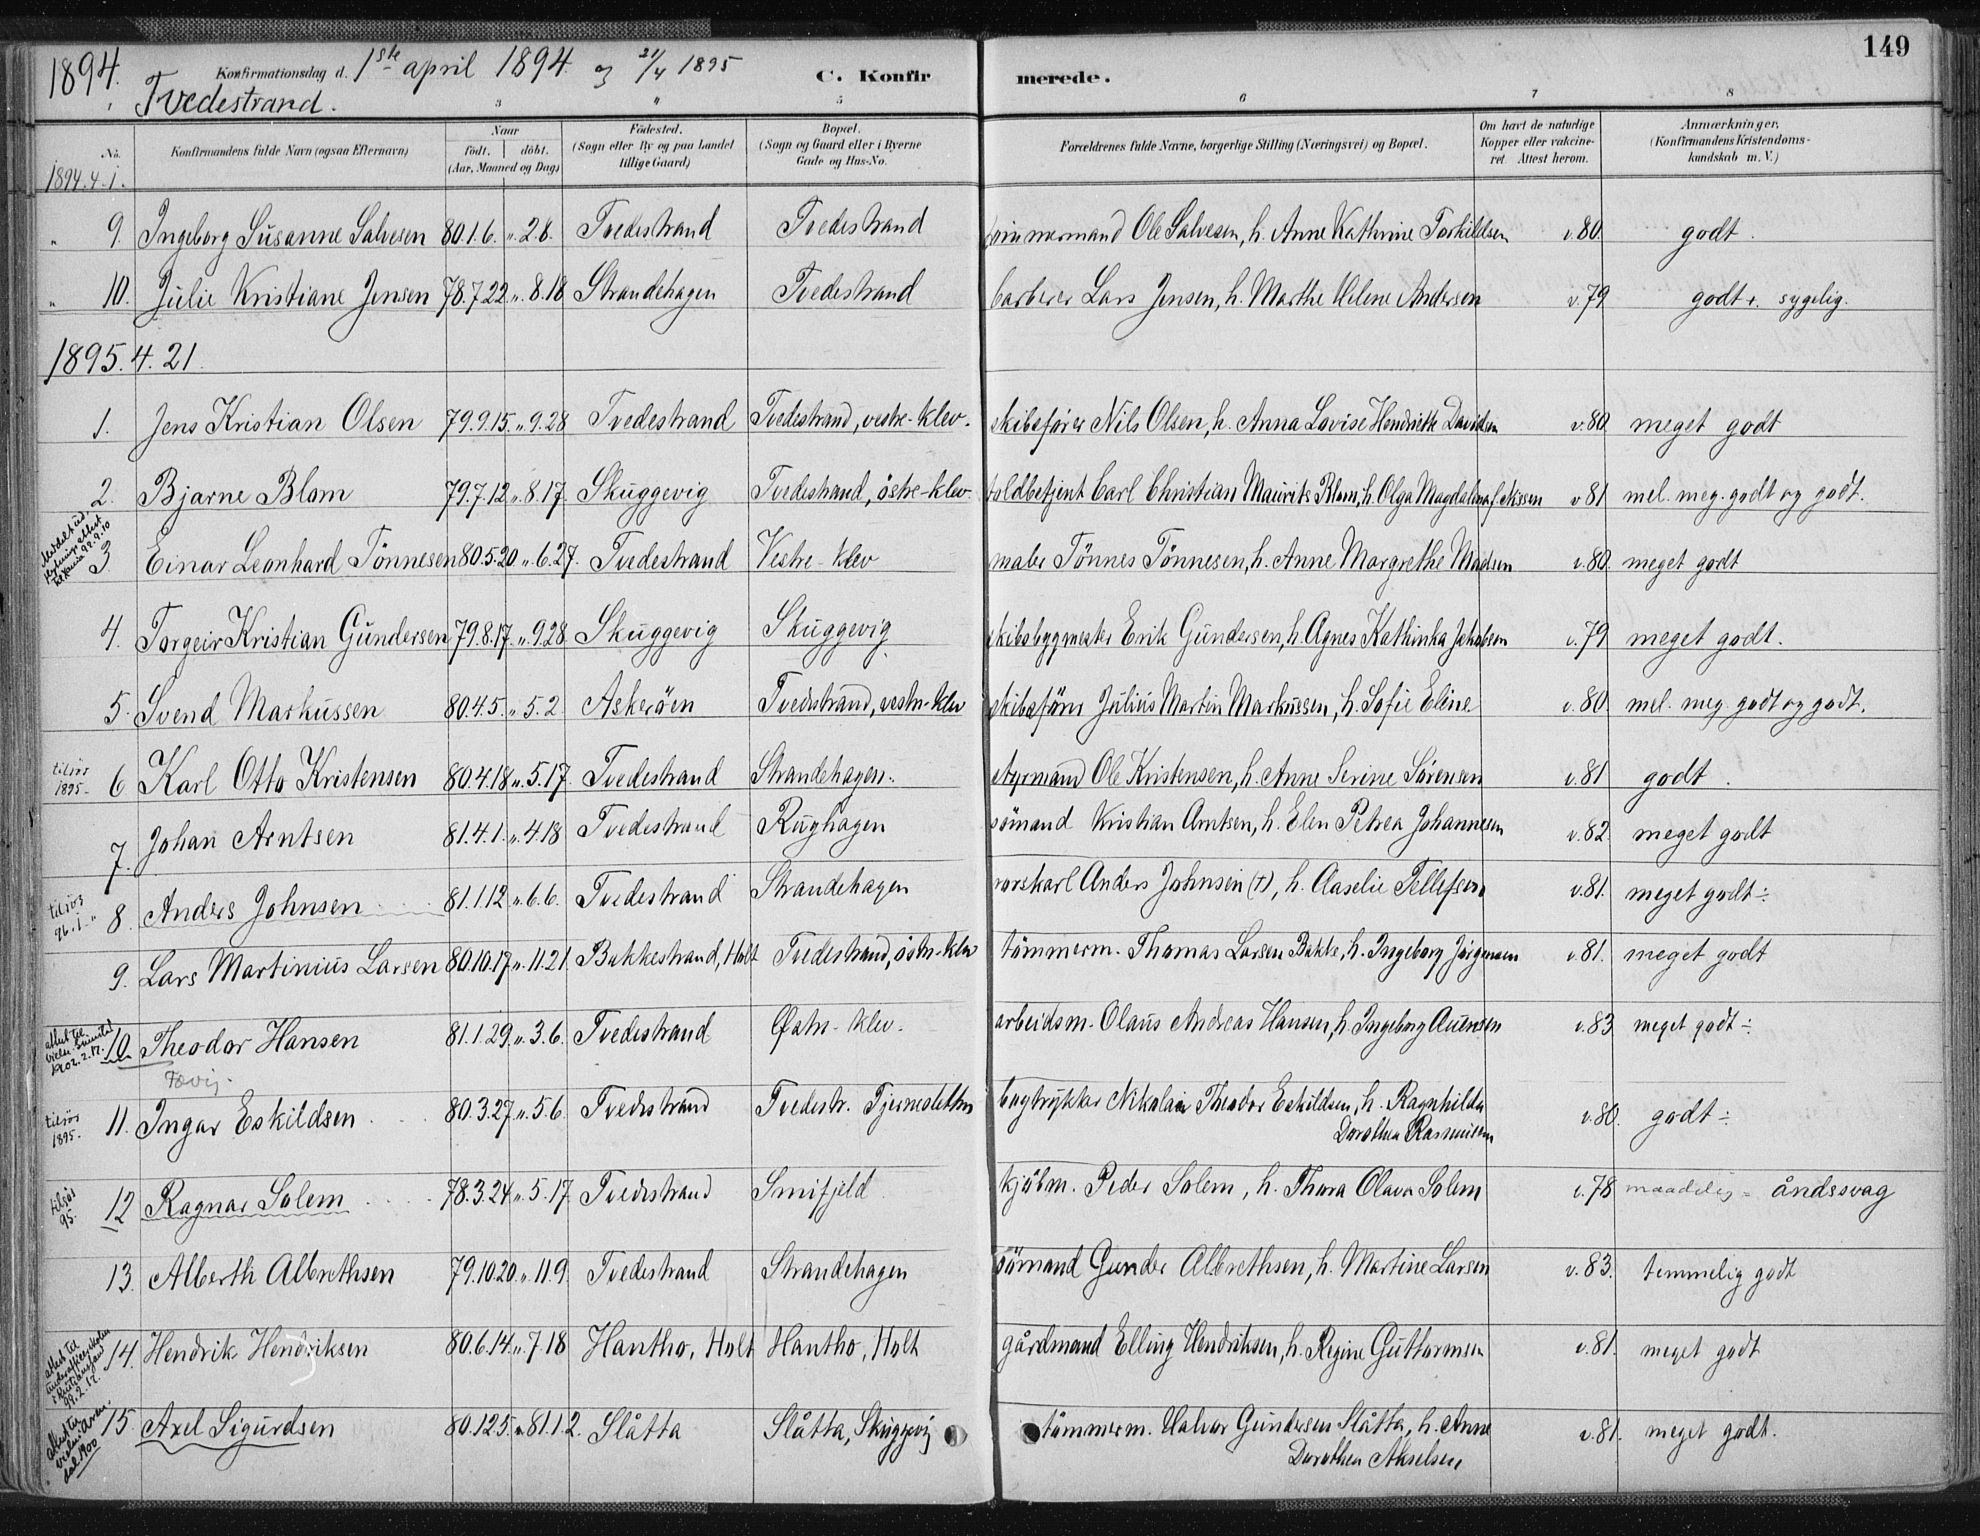 1894. Konfirmationsdag d. 1ste april 1894. og 21/4 1895 C. Konfirmerede. 149
Tvedestrand.
3 5 6 7 8
No. Konfirmandens fulde Navn (ogsaa Efternavn) Naar født. døbt. (Aar, Maaned og Dag) Fødested. (Sogn eller By og paa Landet tillige Gaard) Bopæl. (Sogn og Gaard eller i Byerne Gade og Hus-No. Forældrenes fulde Navne, borgerlige Stilling (Næringsvei) og Bopæl. Om havt de naturlige Kopper eller vakcineret. Attest herom. Anmærkninger. (Konfirmandens Kristendomskundskab m. V.)
1894.4.1.
" 9. Ingeborg Susanne Salvesen 80.1.6. ". 2.8. Tvedestrand Tvedestrand tømmermand Ole Salvesen, h. Anne Kathrine Torkildsen v.80. godt.
" 10. Julie Kristiane Jensen 78.7.22 ". 8.18 Strandehagen Tvedestrand barberer Lars Jensen, h. Marthe Helene Andersen v.79 godt+. sygelig.
1895.4.21.
1. Jens Kristian Olsen 79.9.15. ". 9.28 Tvedestrand Tvedestrand, vestre-klev. skibsfører Nils Olsen, h. Anna Lovise Hendriette Davidsen v.80 meget godt
2. Bjarne Blom 79.7.12. ". 8.17. Skuggevig Tvedestrand, østre-klev. toldbetjent Carl Christian Maurits Blom, h. Olga Magdalena v 81 mel. meg. godt og godt.
3. Einar Leonhard Tönnesen 80.5.20. ". 6.27. Tvedestrand Vestre-klev maler Tönnes Tönnesen, h. Anne Margrethe Madsen v.80. meget godt
4. Torgeir Kristian Gundersen 79.8.17. ". 9.28 Skuggevig Skuggevig skibsbygmester Erik Gundersen, h. Agnes Kathinka Jakobsen v.79 meget godt.
5. Svend Markussen 80.4.5. ". 5.2. Askerøen Tvedestrand, vestre-klev skibsfører Julius Martin Markussen, h. Sofie Eline v.80. mel. meg. godt og godt.
tilsjøs 1895. 6 Karl Otto Kristensen 80.4.18 ". 5.17. Tvedestrand Strandehagen. styrmand Ole Kristensen, h. Anne Serine Sørensen v.81 godt.
7. Johan Arntsen 81.4.1. ". 4.18 Tvedestrand Rughagen sømand Kristian Arntsen, h. Elen Petrea Johannesen v.82. meget godt
tilsjøs 96.1. 8. Anders Johnsen 81.1.12 ". 6.6. Tvedestrand Strandehagen Anders Johnsen (†), h. Aaselie Tellefsen v.81. meget godt÷
9. Lars Martinius Larsen 80.10.17 ". 11.21. Bakkestrand, Holt Tvedestrand, østre-klev tømmerm. Thomas Larsen Bakke, h. Ingeborg Jörgensen v.81. meget godt
attest til 1902.2.17. 10 Theodor Hansen 81.1.29. ". 3.6. Tvedestrand Østre-klev. arbeidsm. Olaus Andreas Hansen, h. Ingeborg Auensen v.83 meget godt÷
Tovig.
tilsjøs 1895. 11. Ingar Eskildsen 80.3.27 ". 5.6. Tvedestrand Tvedestr. Tjennesletten bogtrykker Nikolai Theodor Eskildsen, h. Ragnhilda v.80. godt÷
Dorothea Rasmussen
tilsjøs 95. 12 Ragnar Solem 78.3.24 ". 5.17. Tvedestrand Smifjeld kjöbm. Peder Solem, h. Thora Olava Solem v.78 maadelig = åndssvag
13. Alberth Albrethsen 79.10.20. ". 11.9. Tvedestrand Strandehagen sømand Gunder Albrethsen, h. Martine Larsen v.83. temmelig godt
attest til 99.2.17. 14. Hendrik Hendriksen 80.6.14. ". 7.18 Hantho, Holt Hantho, Holt gårdmand Elling Hendriksen, h. Regine Guttormsen v.81. meget godt
attest til vielse i Arendal 1900 15. Axel Sigurdsen 80.12.5. " 81.1.2. Slåtta Slåtta, Skuggevig tømmerm. Halvor Gundersen Slåtta, h. Anne v.81. meget godt.
Dorothea Akselsen